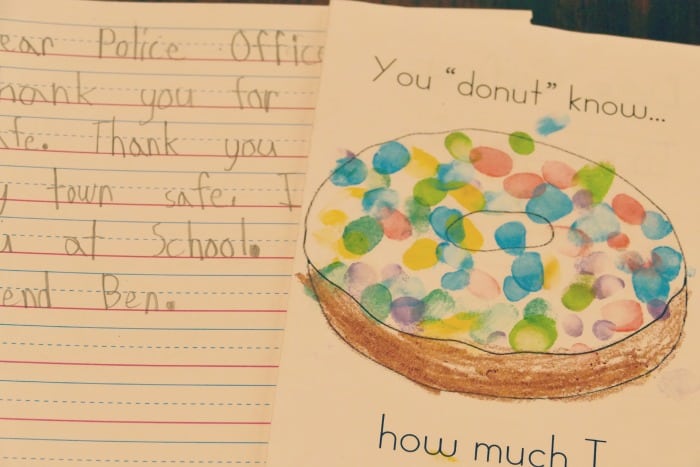 ear Police Offic
hank you for
fe. Thank you
y town safe. I
u at School.
end Ben.
You “donut” know...
how much I